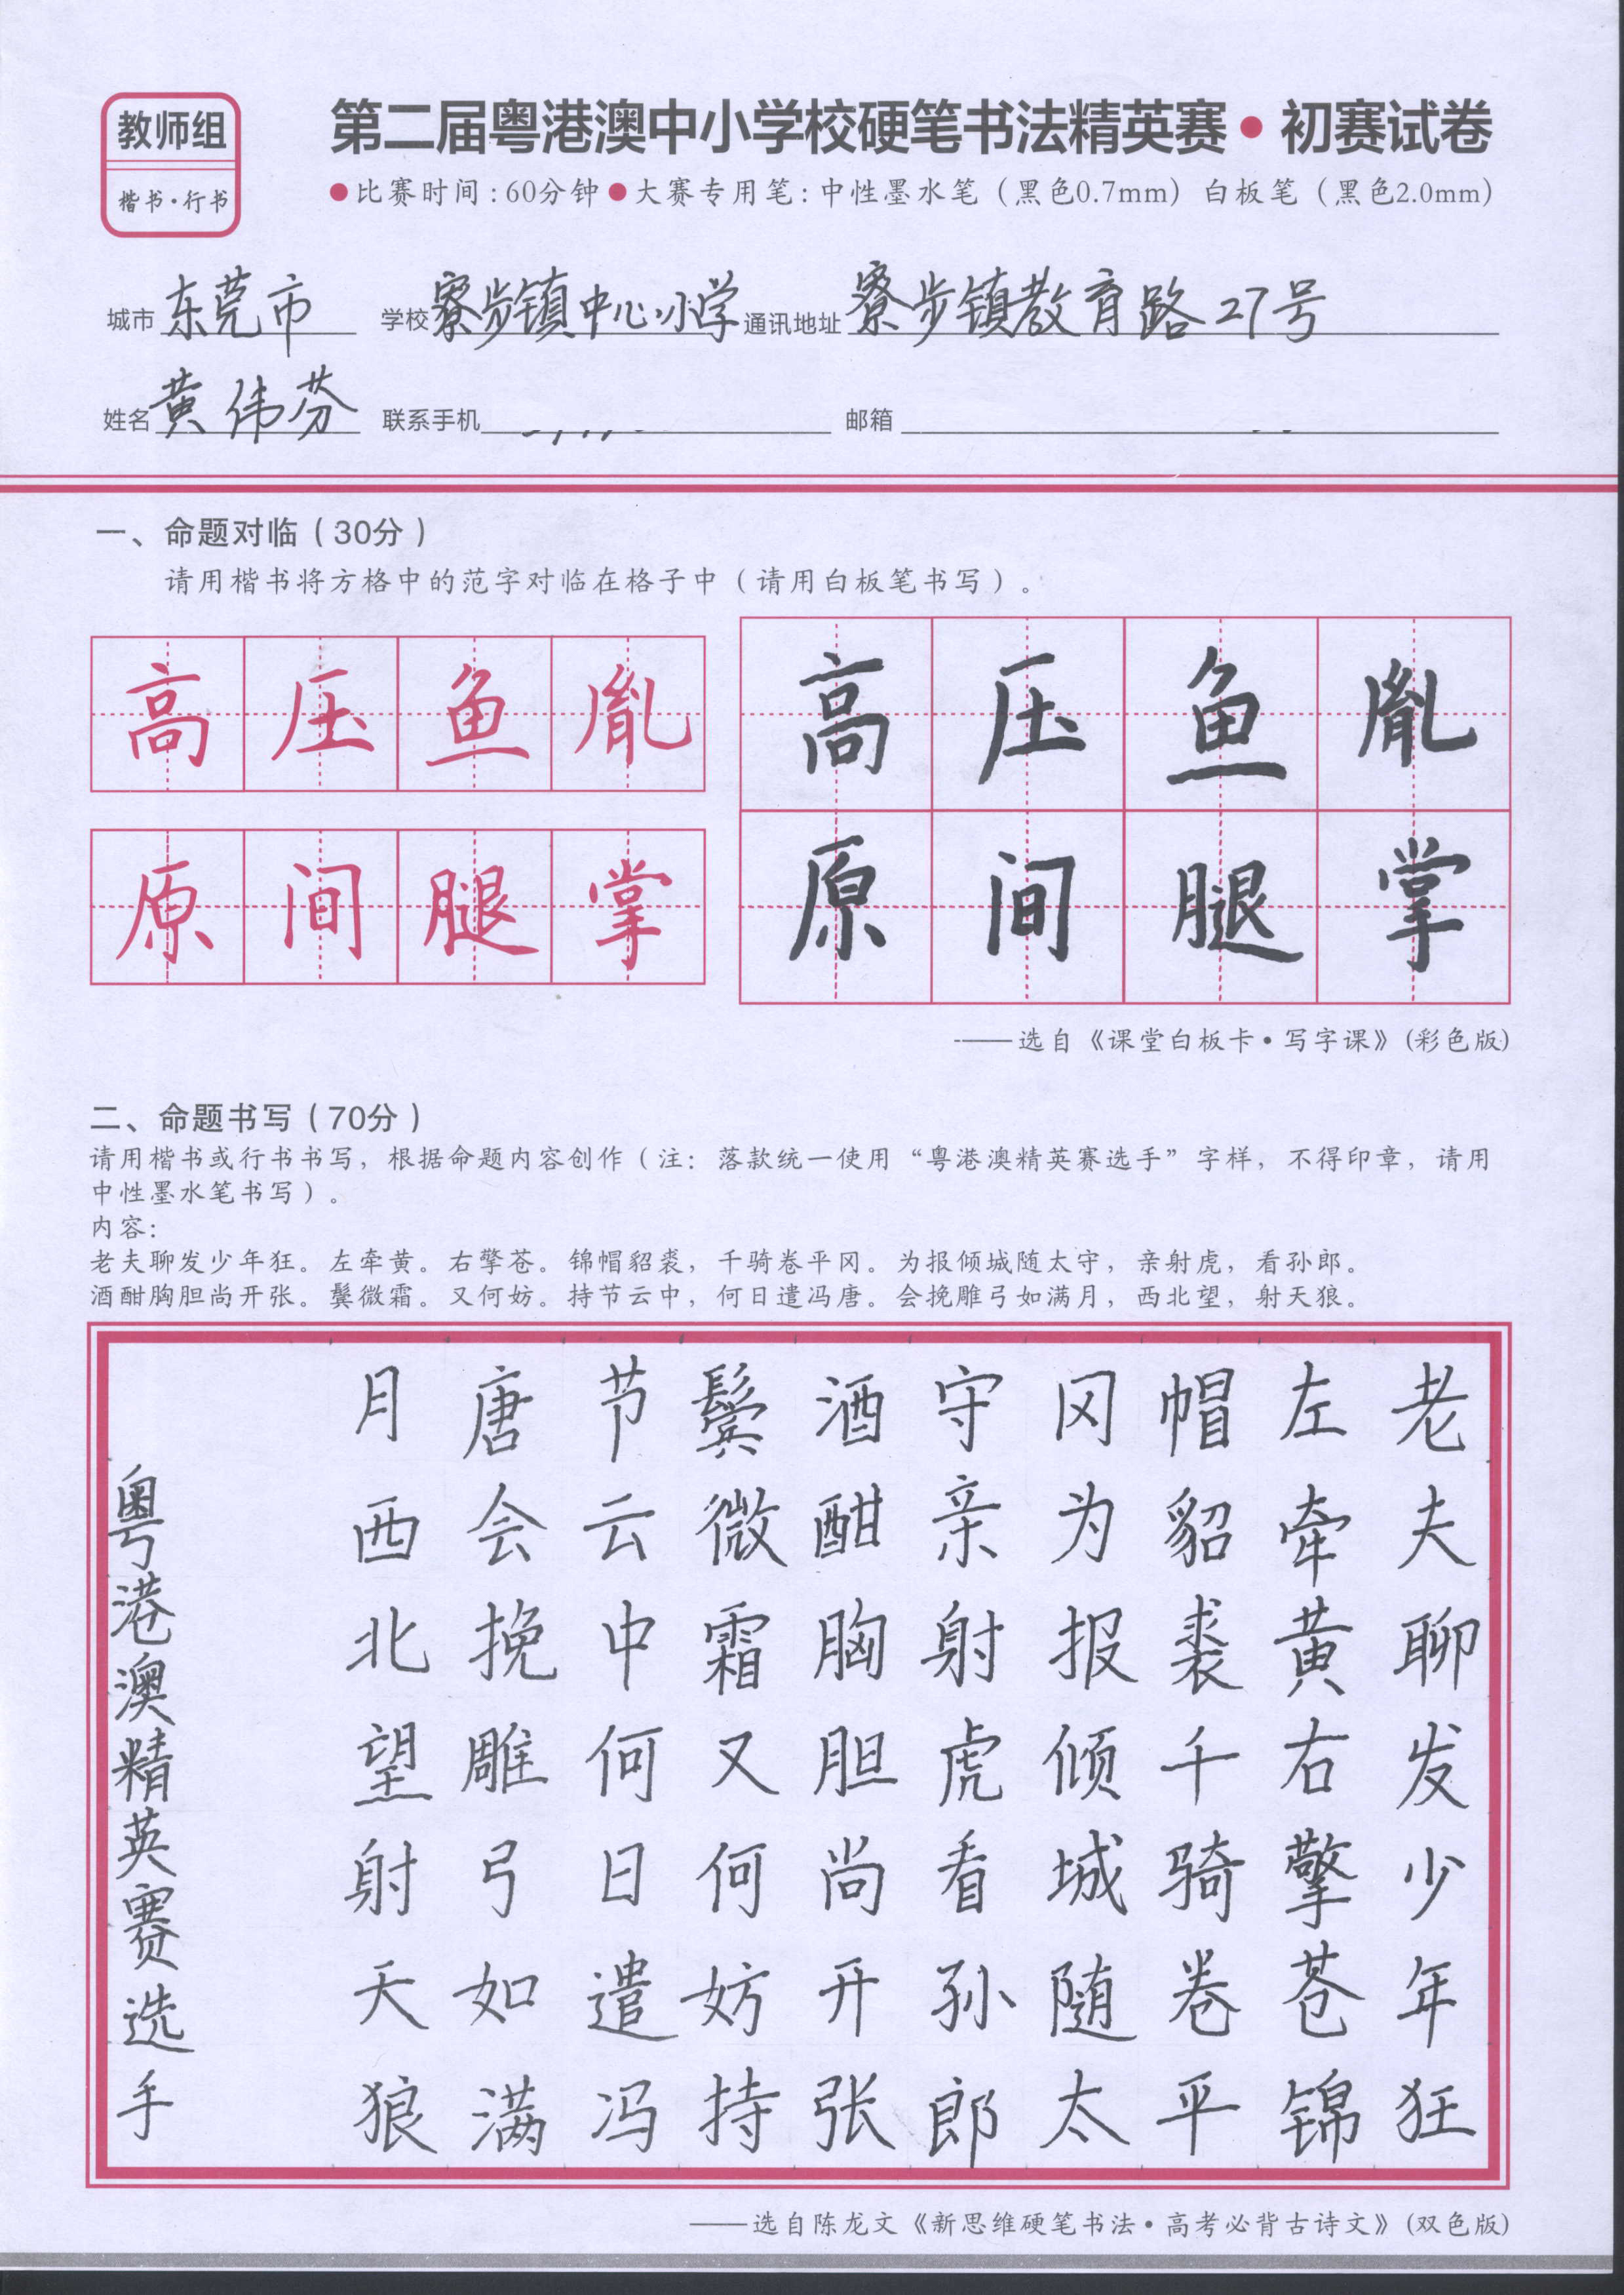 教师组
楷书·行书
第二届粤港澳中小学校硬笔书法精英赛•初赛试卷
●比赛时间:60分钟●大赛专用笔:中性墨水笔（黑色0.7mm）白板笔（黑色2.0mm）
城市 东莞市 学校 寮步镇中心小学 通讯地址 寮步镇教育路27号
姓名 黄伟芬 联系手机 邮箱
一、命题对临（30分）
请用楷书将方格中的范字对临在格子中（请用白板笔书写）。
高压鱼胤
原间腿掌
高压鱼胤
原间腿掌
——选自《课堂白板卡•写字课》(彩色版)
二、命题书写（70分）
请用楷书或行书书写，根据命题内容创作（注：落款统一使用“粤港澳精英赛选手”字样，不得印章，请用
中性墨水笔书写）。
内容：
老夫聊发少年狂。左牵黄。右擎苍。锦帽貂裘，千骑卷平冈。为报倾城随太守，亲射虎，看孙郎。
酒酣胸胆尚开张。鬓微霜。又何妨。持节云中，何日遣冯唐。会挽雕弓如满月，西北望，射天狼。
老夫聊发少年狂
左牵黄右擎苍锦
帽貂裘千骑卷平
冈为报倾城随太
守亲射虎看孙郎
酒酣胸胆尚开张
鬓微霜又何妨持
节云中何日遣冯
唐会挽雕弓如满
月西北望射天狼
粤港澳精英赛选手
——选自陈龙文《新思维硬笔书法•高考必背古诗文》(双色版)